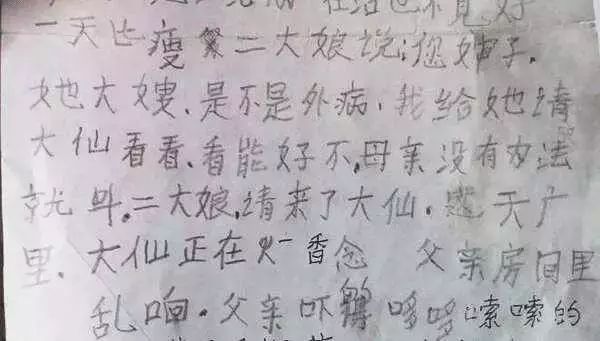 也不见好
一天比瘦 二大娘说:您婶子.
她大嫂.是不是外病.我给她请
大仙看看.看能好不,母亲没有办法
就叫.二大娘,请来了大仙. 天广
里.大仙正在火一香念 父亲房间里
乱响.父亲吓的哆哆嗦嗦的